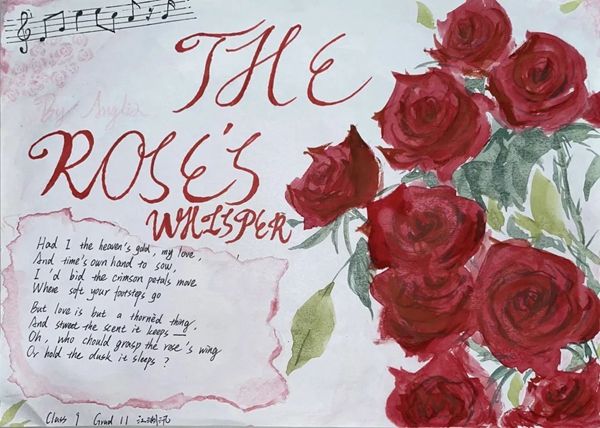 THE
By Anglia
ROSE'S
WHISPER
Had I the heaven's gold, my love,
And time's own hand to sow,
I'd bid the crimson petals move
Where soft your footsteps go
But love is but a thornèd thing,
And the scent it keeps
Oh, who should grasp the rose's wing
Or hold the dusk it sleeps?
Class 9 Grad 11